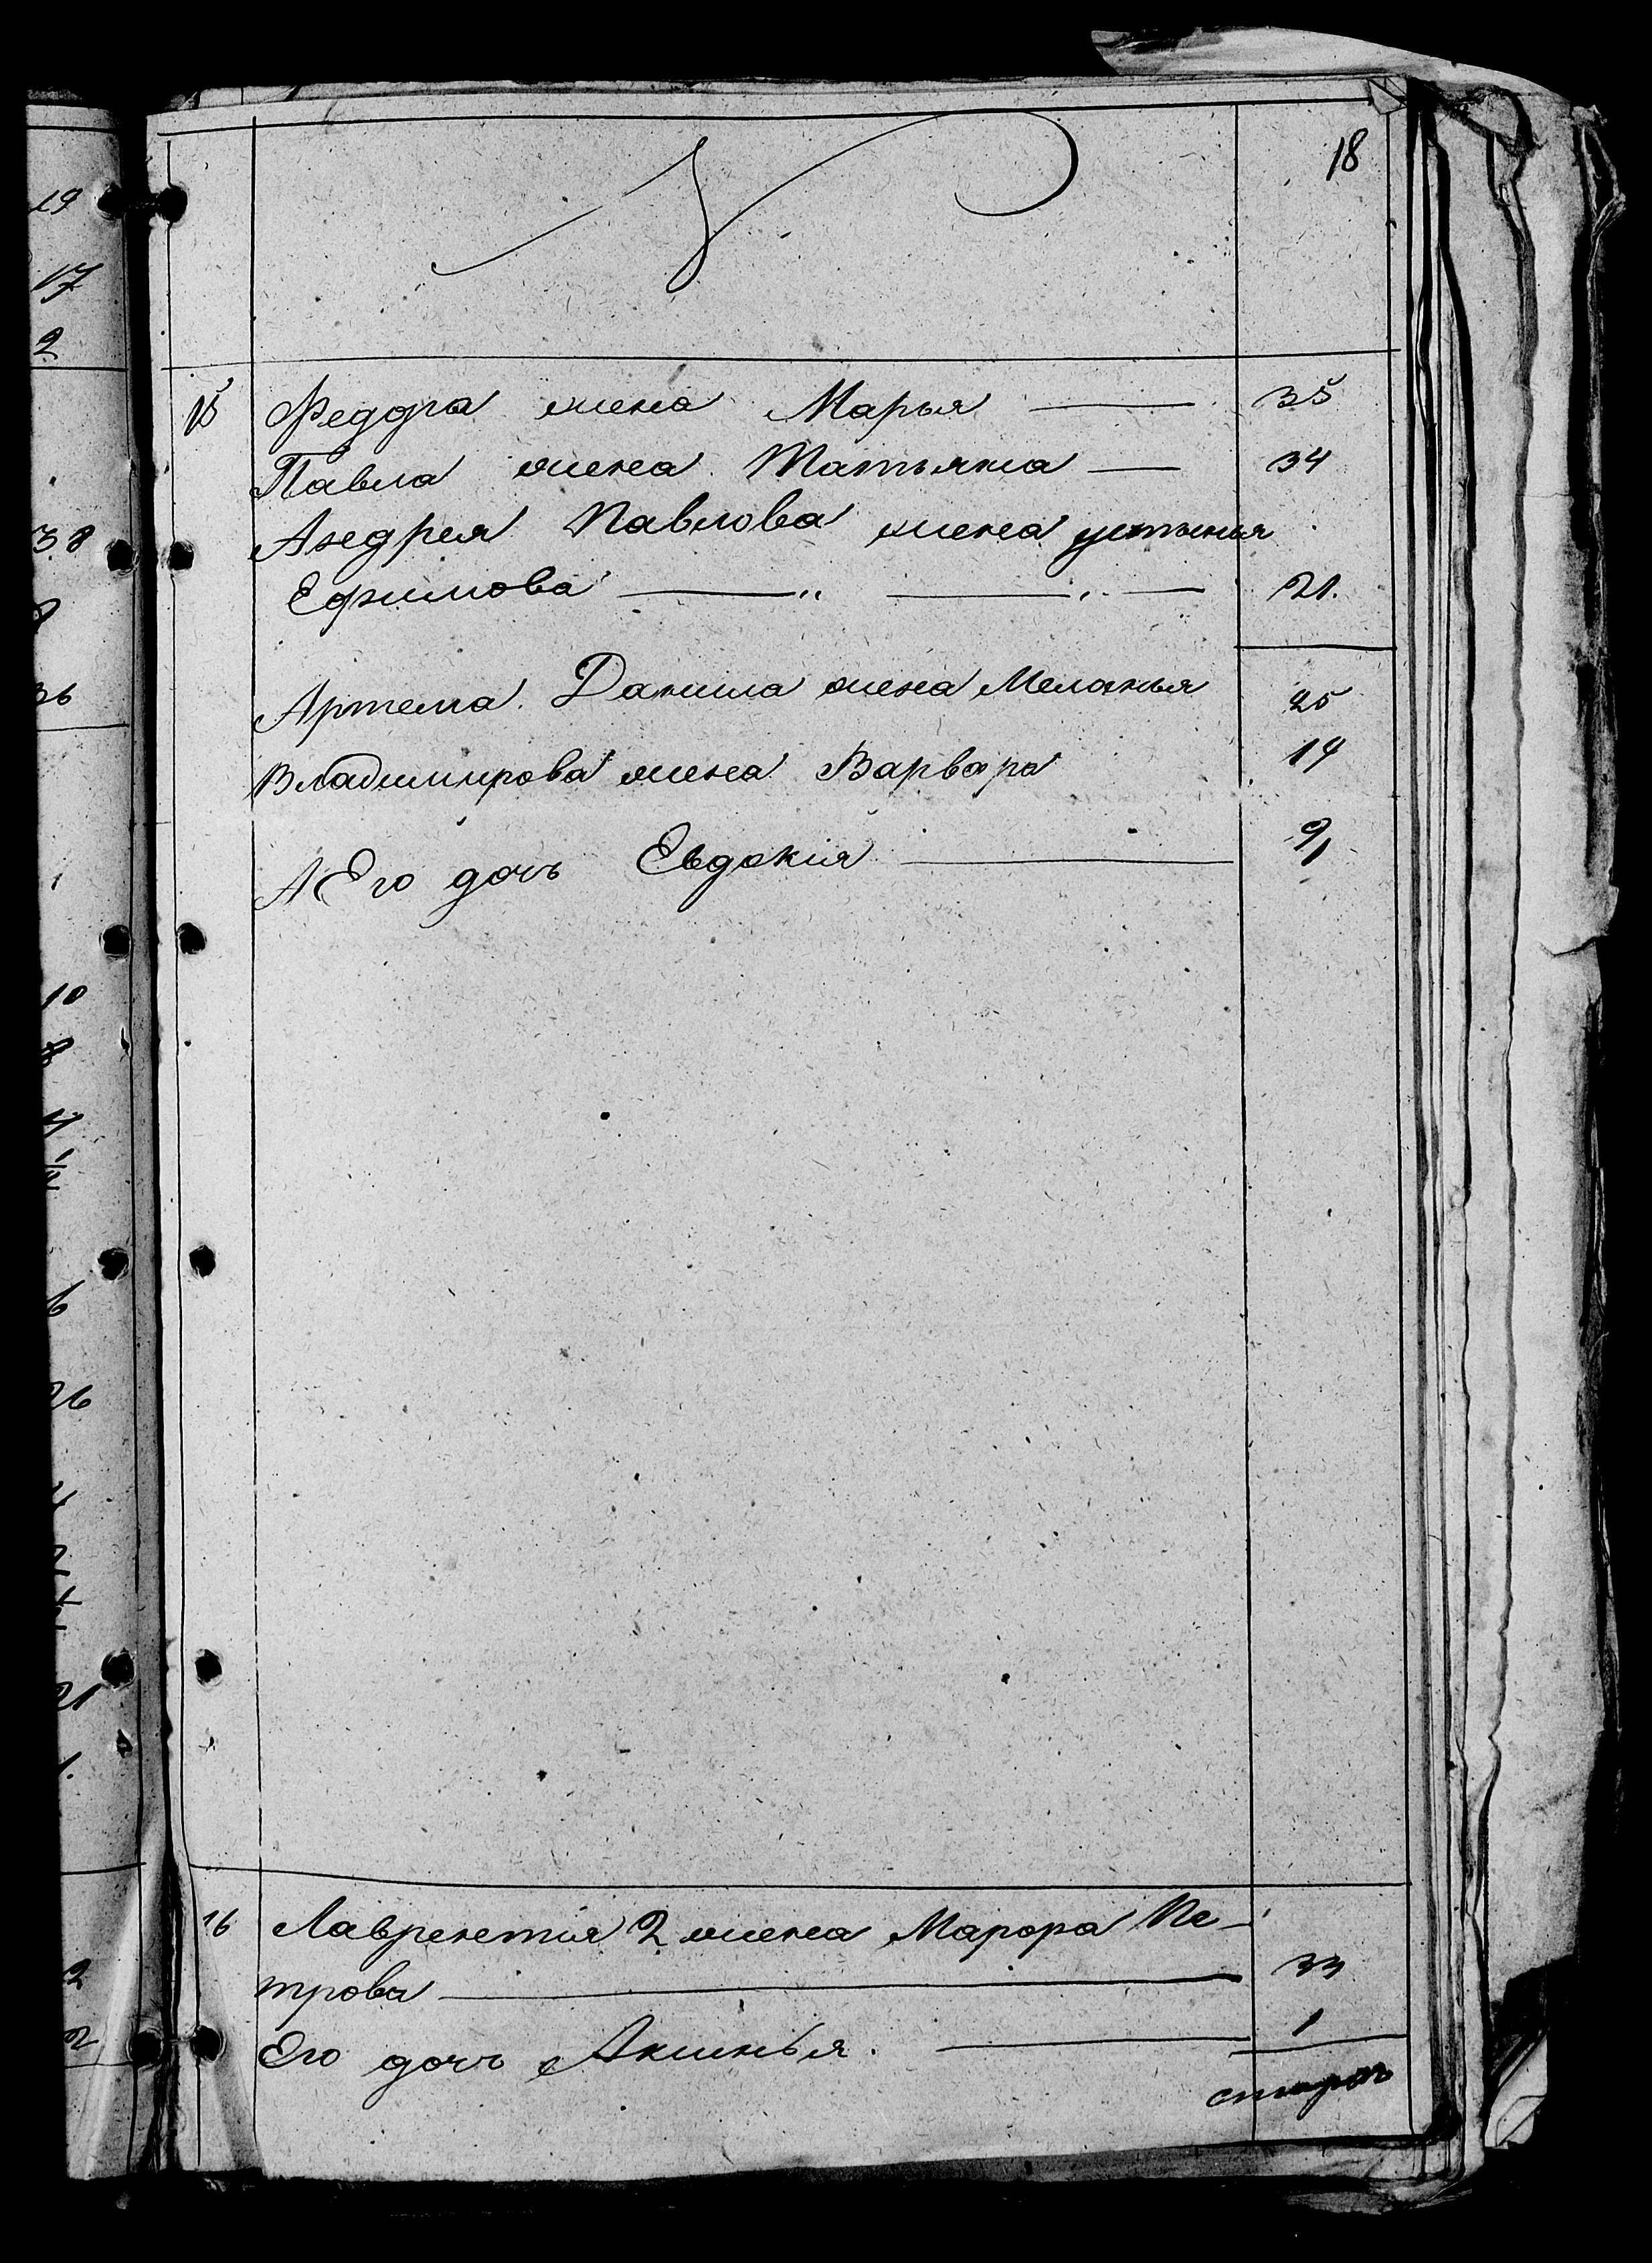 18
15 Федора жена Марья 35
Павла жена Татьяна 34
Андрея Павлова жена устинья
Ефимова 21.
Артема. Данила жена Меланья 25
Владимирова жена Варвара 14
А Его дочь Евдокия 9
16 Лаврентия 2 жена Марфа Пе-
трова 33
Его дочь Аксинья. 1
19
17
2
38
36
10
8
6
26
21
1.
2
2